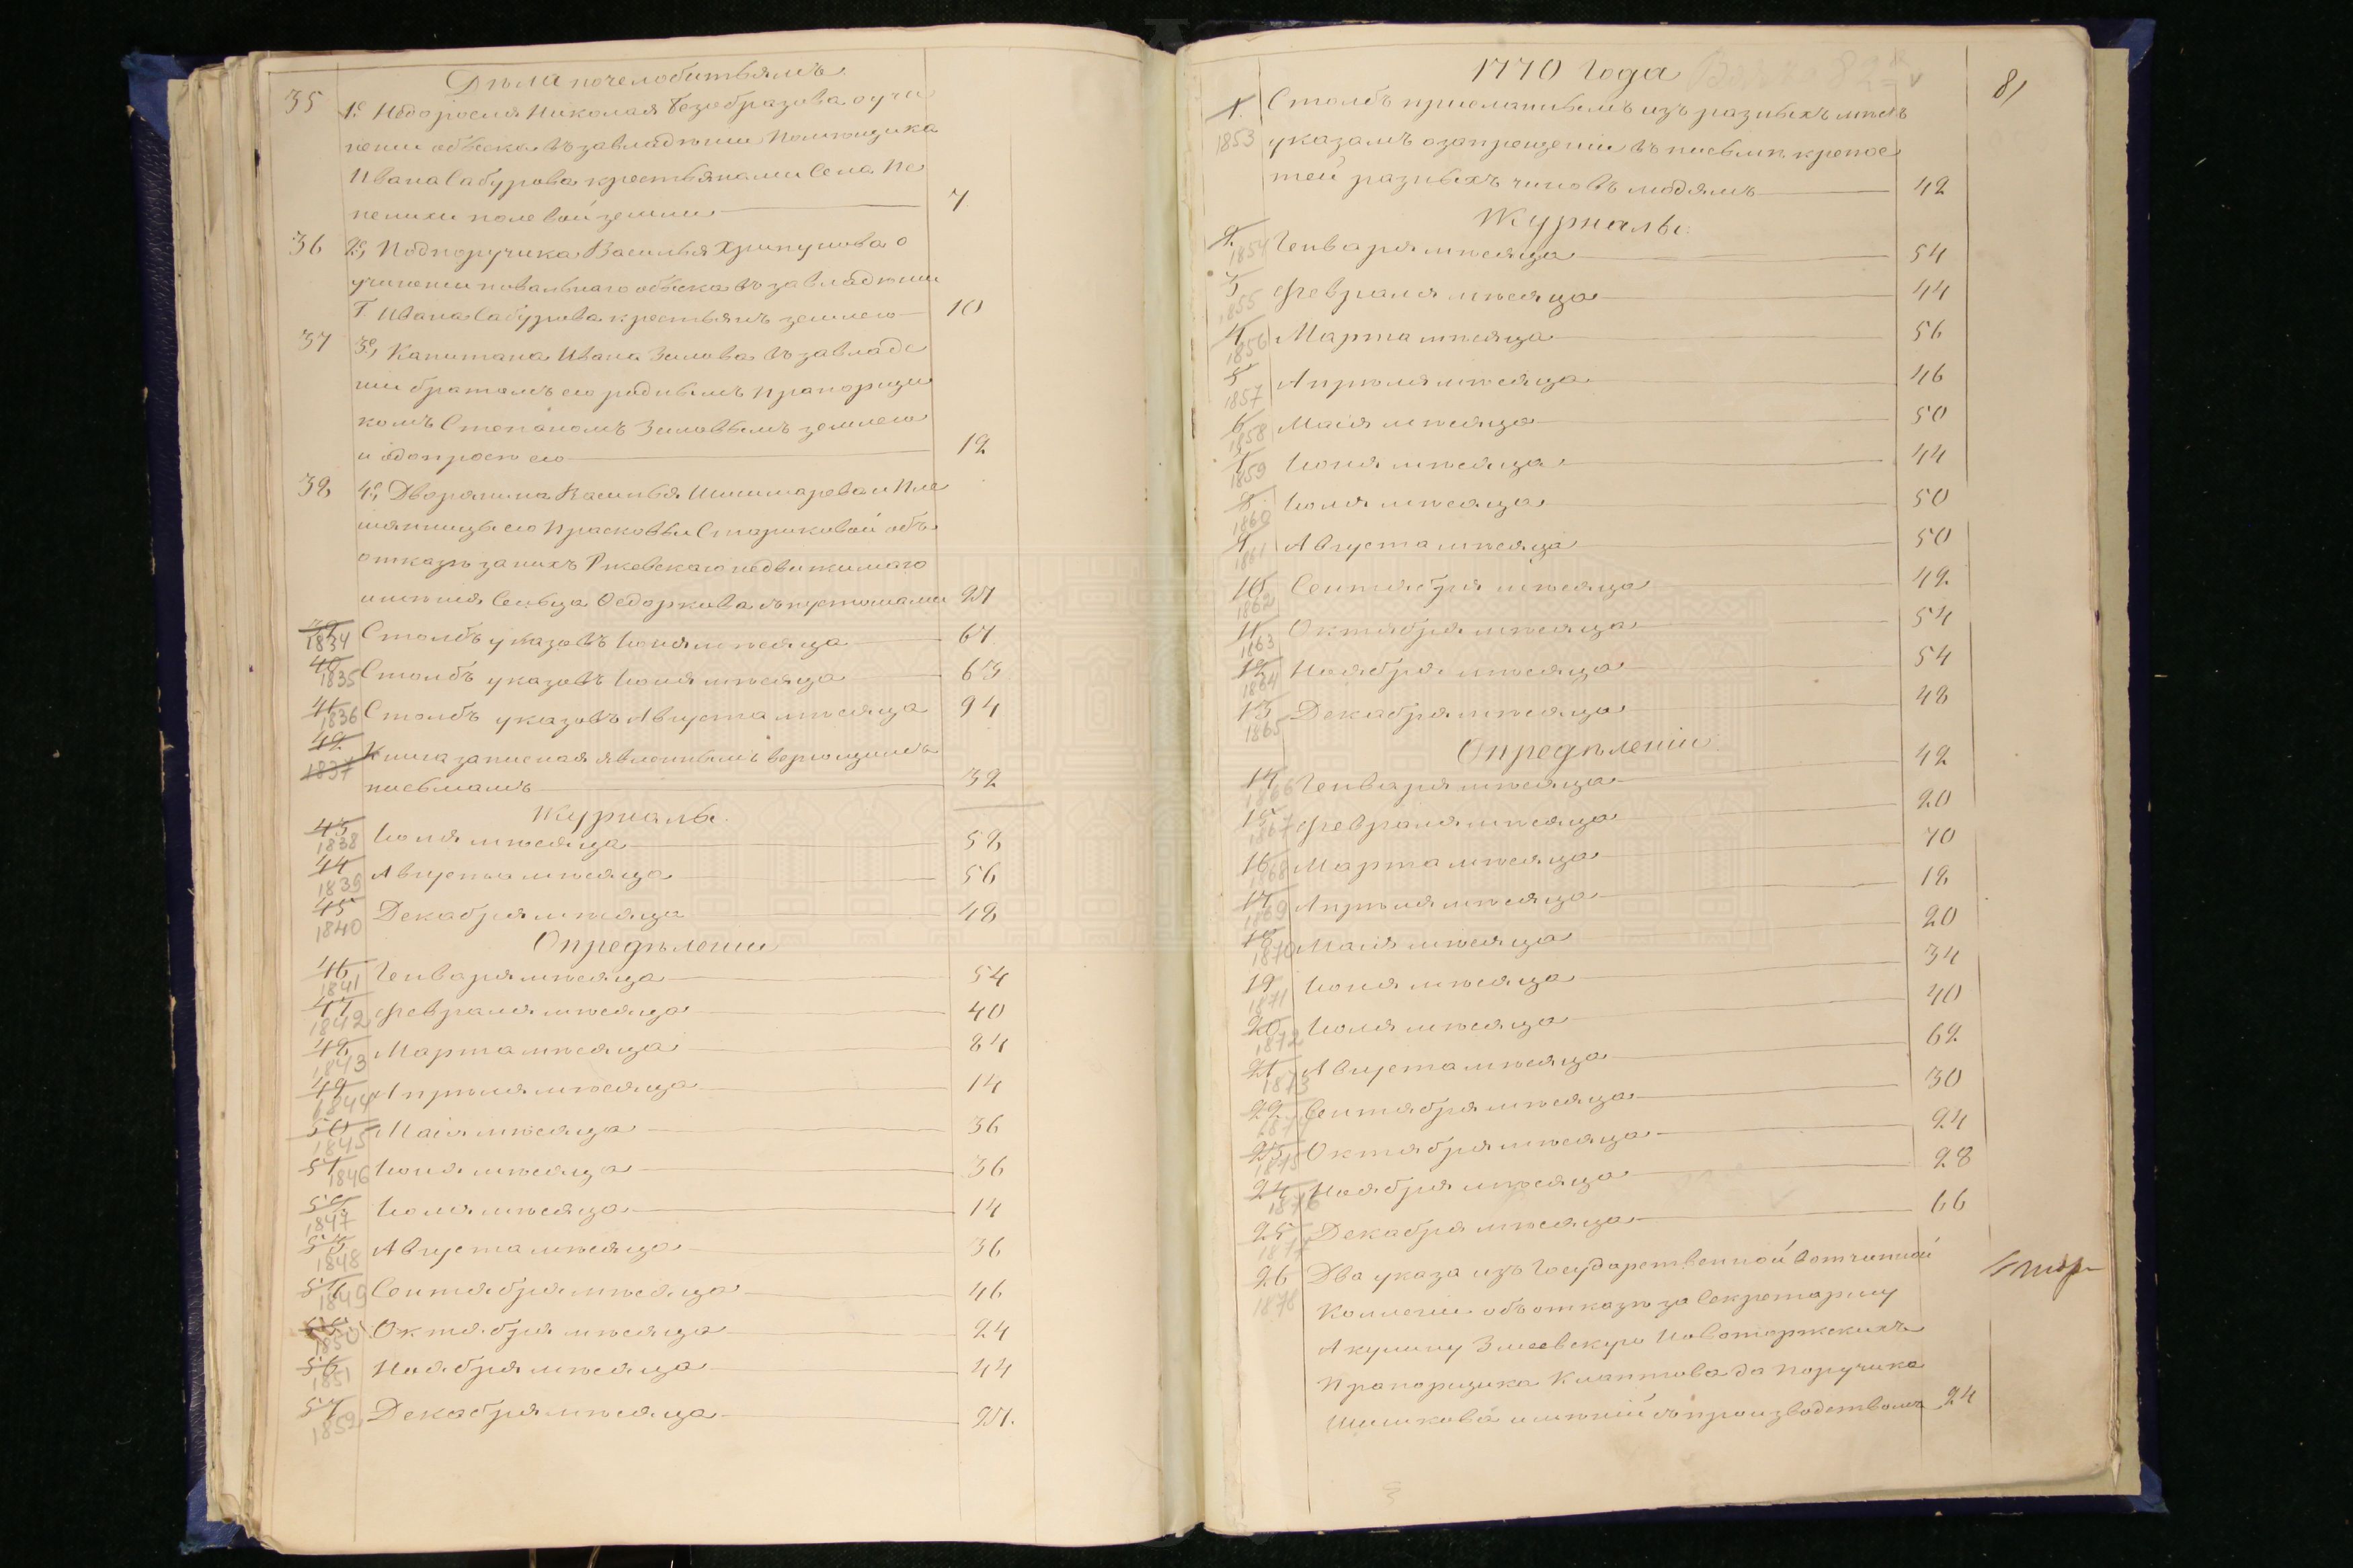 Дѣла почелобитьямъ
35 1е. Недоросля Николая Безобразова о учи
неніи обыска въ завладѣніи Помѣщика
Ивана Сабурова крестьянами Села Пе
пелихи полевой земли 7.
36 2е, Подпоручика Василья Хрипунова о
учиненіи повальнаго обыска въ завладѣніи
Г. Ивана Сабурова крестьянъ землею 10
37 3е, Капитана Ивана Зилова въ завладе
ніи братомъ его роднымъ Прапорщи
комъ Степаномъ Зиловымъ землею
и одопросѣ его 12
38 4е, Дворянина Василья Шишмарева и Пле
мянницы его Прасковьи Стариковой объ
отказѣ за нихъ Ржевскаго недвижимаго
имѣнія Сельца Федоркова съ пустошами 27
39 1834 Столбъ указовъ Іюня мѣсяца 67.
40 1835 Столбъ указовъ Іюля мѣсяца 63
41 1836 Столбъ указовъ Августа мѣсяца 94
42 1837 Книга записная явленнымъ верющимъ
письмамъ 32
Журналы.
43 1838 Іюля мѣсяца 58
44 1839 Августа мѣсяца 56
45 1840 Декабря мѣсяца 48
Опредѣленіи
46 1841 Генваря мѣсяца 54
47 1842 Февраля мѣсяца 40
48 1843 Марта мѣсяца 84
49 1844 Апрѣля мѣсяца 14
50 1845 Маія мѣсяца 36
51 1846 Іюня мѣсяца 36
52 1847 Іюля мѣсяца 14
53 1848 Августа мѣсяца 36
54 1849 Сентября мѣсяца 46
55 1850 Октября мѣсяца 24
56 1851 Ноября мѣсяца 44
57 1852 Декабря мѣсяца 27.
1770 Года
81
1. 1853 Столбъ присланнымъ изъ разныхъ мѣстъ
указамъ озапрещеніи въ письмѣ крепос
тей разныхъ чиновъ людямъ 42
Журналы.
2. 1854 Генваря мѣсяца 54
3 1855 Февраля мѣсяца 44
4 1856 Марта мѣсяца 56
5 1857 Апрѣля мѣсяца 46
6 1858 Маія мѣсяца 50
7 1859 Іюня мѣсяца 44
8 1860 Іюля мѣсяца 50
9 1861 Августа мѣсяца 50
10 1862 Сентября мѣсяца 42
11 1863 Октября мѣсяца 54
12 1864 Ноября мѣсяца 54
13 1865 Декабря мѣсяца 48
Опредѣленіи
14 1866 Генваря мѣсяца 42
15 1867 Февраля мѣсяца 20
16 1868 Марта мѣсяца 70
17 1869 Апрѣля мѣсяца 18
18 1870 Маія мѣсяца 20
19 1871 Іюня мѣсяца 34
20 1872 Іюля мѣсяца 40
21 1873 Августа мѣсяца 62
22 1874 Сентября мѣсяца 30
23 1875 Октября мѣсяца 24
24 1876 Ноября мѣсяца 28
25 1877 Декабря мѣсяца 66
26 1878 Два указа изъ Государственной Вотчинной
Коллегіи объ отказѣ за Секретаршу
Акулину Змеевскую Новоторжскихъ
Прапорщика Клаптова да Поручика
Шишкова имѣній съ производствомъ 24